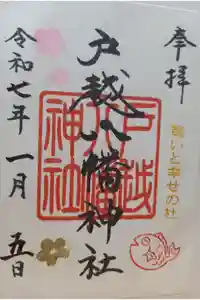 奉拝
いと幸せの社
戸越八幡神社
戸越
八幡
神社
令和七年 一月 五日